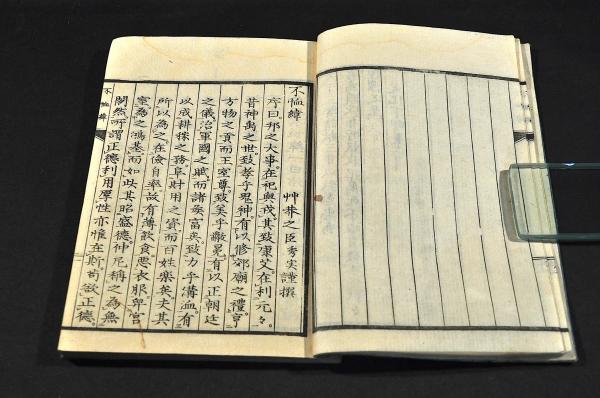 不恤緯
艸莽之臣秀実謹撰
序曰邦之大事在祀與戎其致康乂在利元々
昔神禹之世致孝乎鬼神有以修郊廟之禮享
方物之貢而王室尊致美乎黻冕有以正朝廷
之儀治軍國之賦而諸矦富矣致力乎溝洫有
以成耕稼之務阜財用之資而百姓樂矣夫其
所以為之在儉自率故有薄飲食惡衣服卑宮
室為之鴻基而如此其昭盛德仲尼稱之為無
間然所謂正德利用厚性亦惟在斯苟欲正德
不恤緯